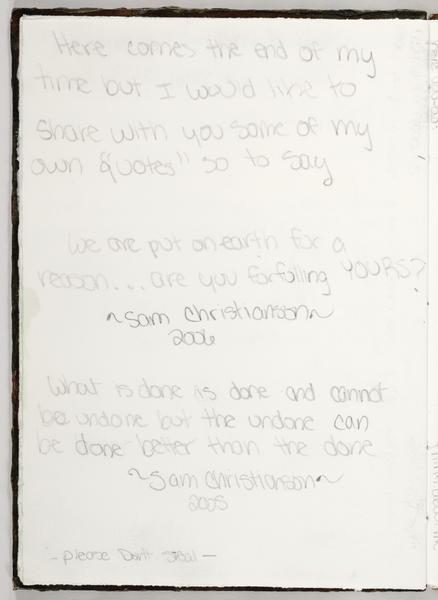 Here comes the end of my
time but I would like to
share with you some of my
own "quotes" so to say
We are put on earth for a
reason... are you forfulling YOURS?
~Sam Christianson~
2006
What is done is done and cannot
be undone but the undone can
be done better than the done
~Sam Christianson~
2005
- please Don't steal -